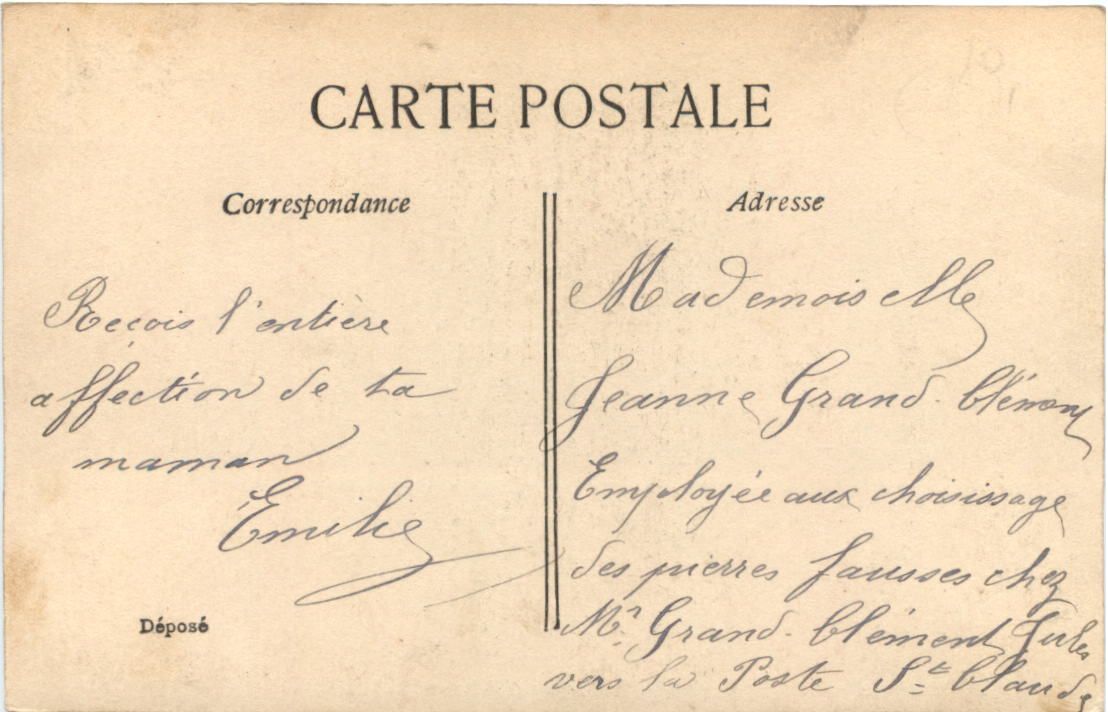 CARTE POSTALE
Correspondance
Reçois l'entière
affection de ta
maman
Émilie
Déposé
Adresse
Mademoiselle
Jeanne Grand-Clément
Employée aux choisissage
des pierres fausses chez
Mr Grand-Clément Jules
vers la Poste St Claude